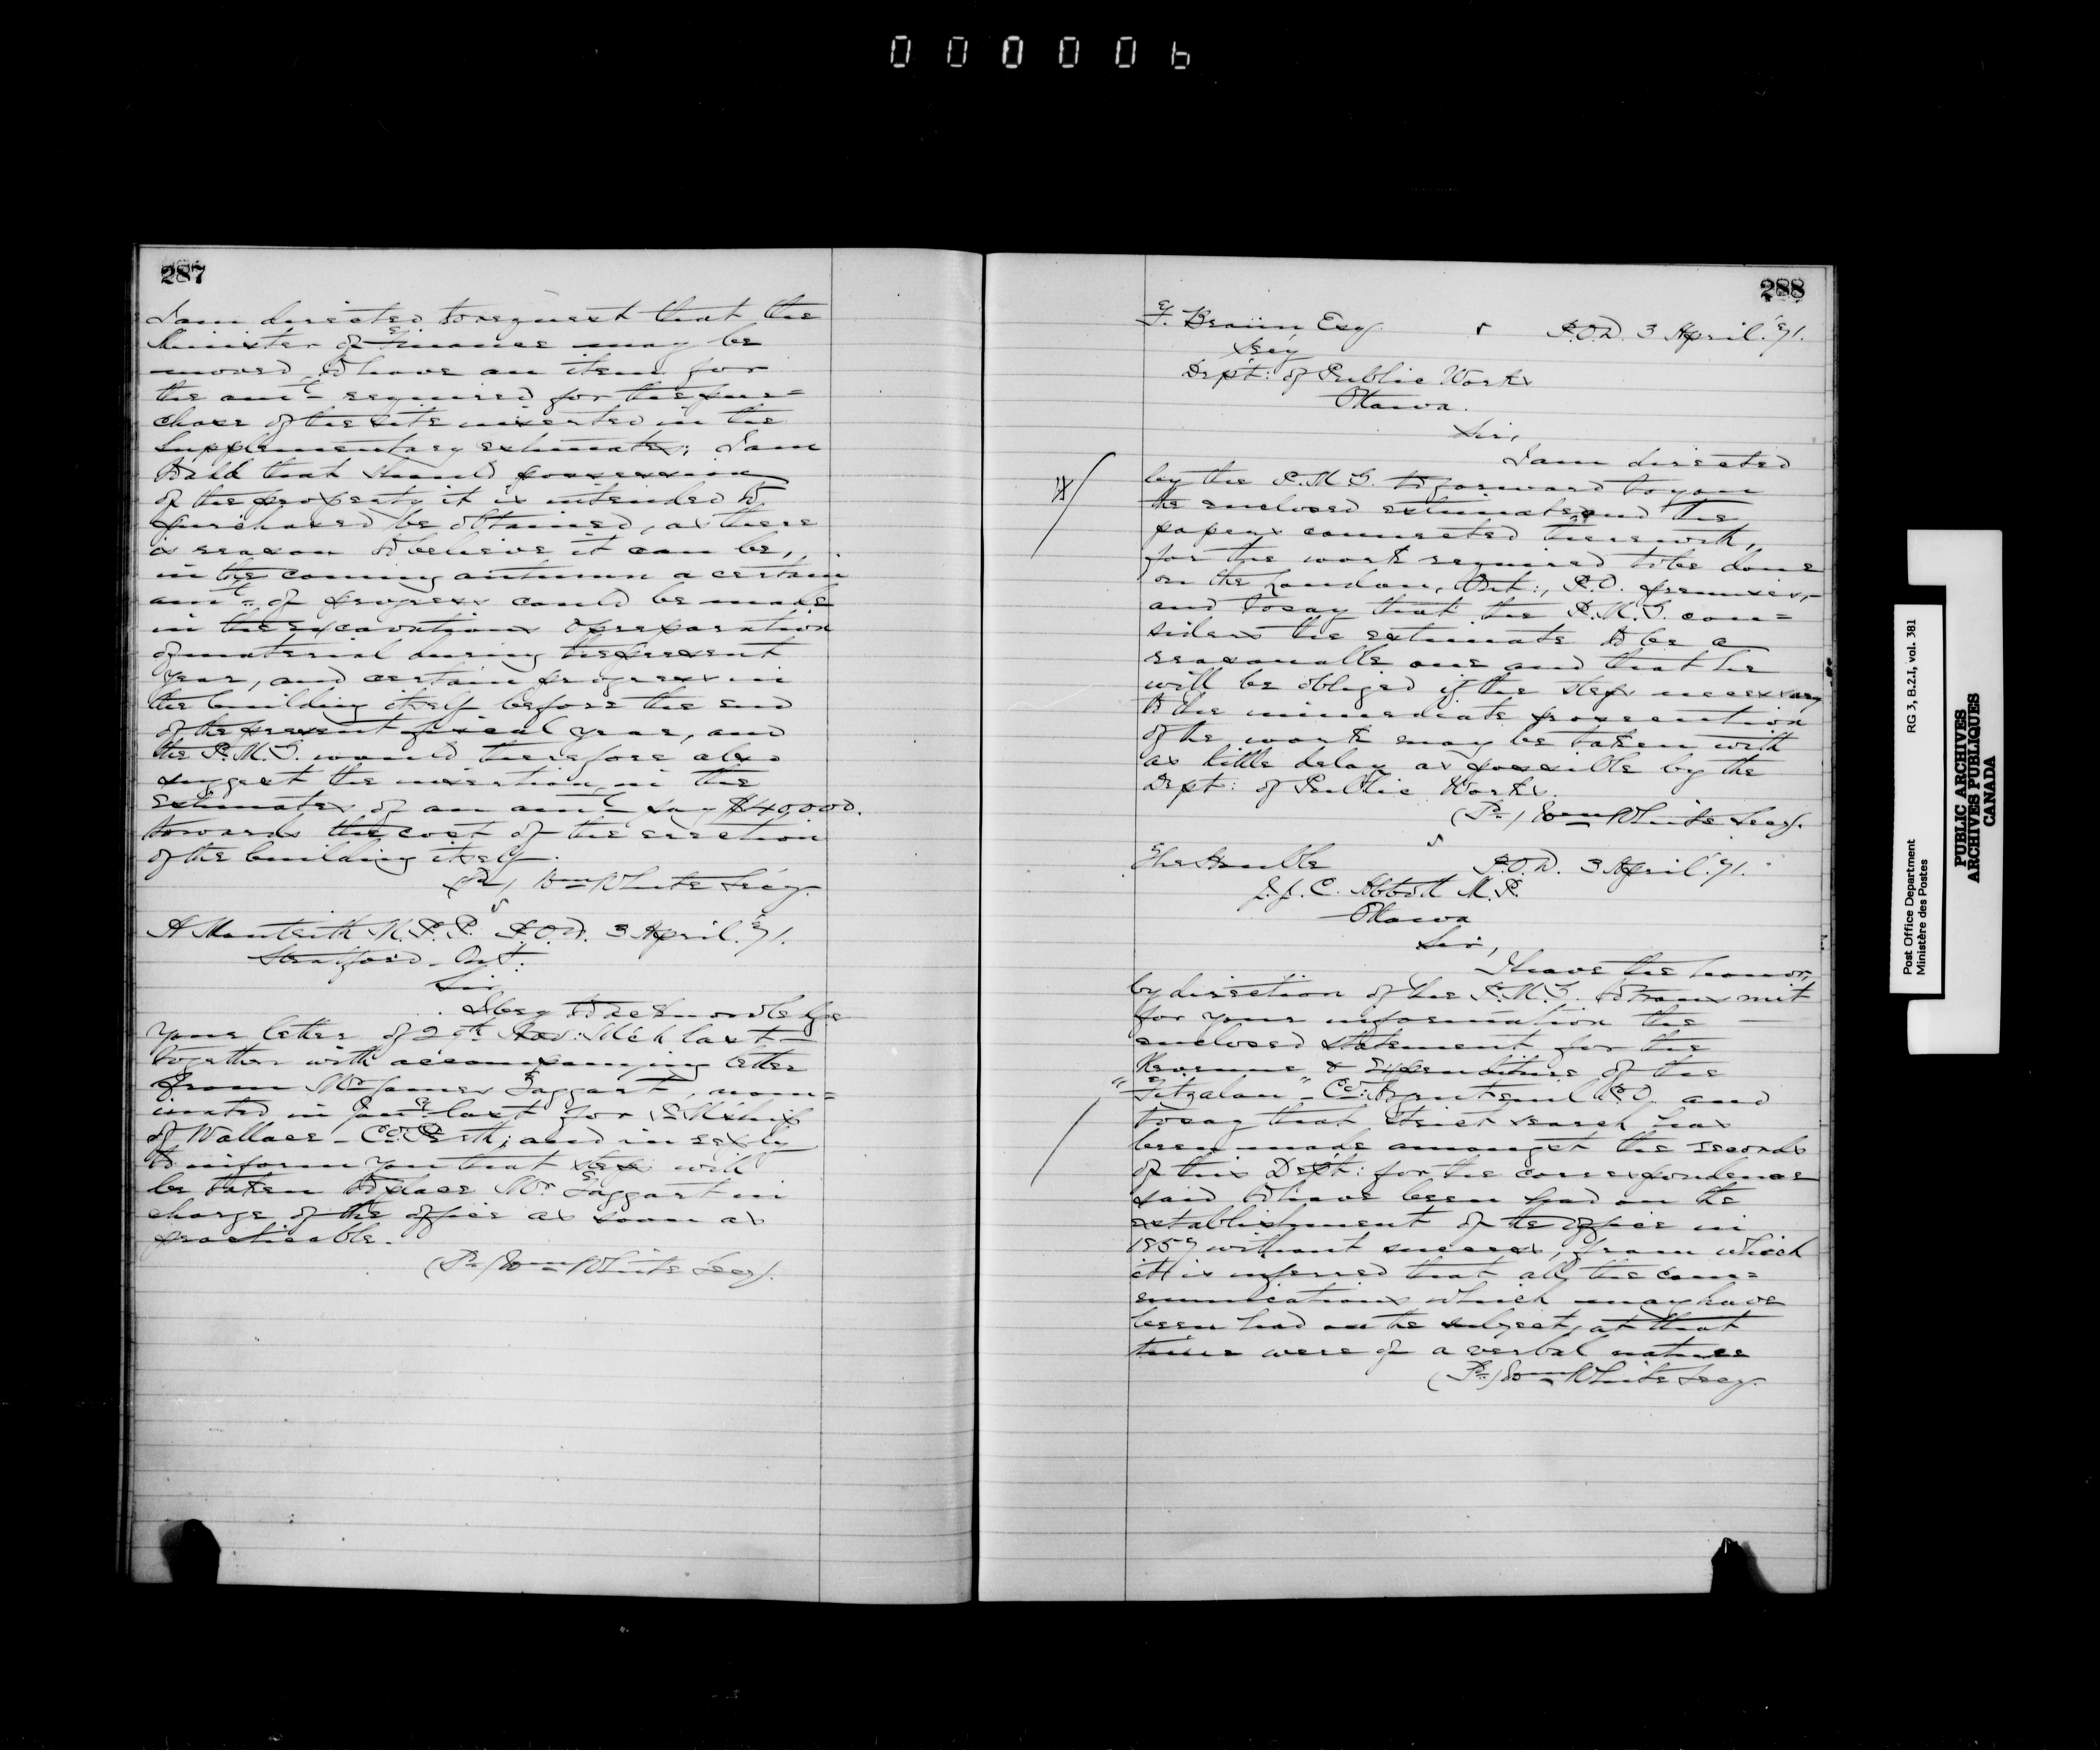 000006
287
I am directed to request that the
Minister of Finance may be
moved to have an item for
the amt. required for the pur=
chase of the site inserted in the
Supplementary estimates; I am
to add that should possession
of the property it is intended to
purchased be obtained, as there
is reason to believe it can be,
in the coming autumn a certain
amt. of progress could be made
in the excavations & preparation
of material during the present
year, and certain progress in
the building itself before the end
of the present fiscal year, and
the P.M.G. would therefore also
suggest the insertion, in the
estimates of an amt. say $40,000.
towards the cost of the erection
of the building itself.
(Sd) Wm White Secy.
A Monteith M.P.P. P.O.D. 3 April '71.
Stratford - Ont.
Sir,
I beg to acknowledge
your letter of 20th March last
together with accompanying letter
from Mr James Taggart, nom=
inated in last for P.M.ship
of Wallace - Co: Perth; and in reply
to inform you that steps will
be taken to place Mr Taggart in
charge of the office as soon as
practicable.
(Sd) Wm White Secy.
288
F. Braun Esq P.O.D. 3 April '71.
Secy
Dept: of Public Works
Ottawa.
Sir,
I am directed
by the P.M.G. to forward to you
the enclosed estimate and the
papers connected therewith,
for the work required to be done
on the London, Ont:, P.O. premises,
and to say that the P.M.G. con=
siders the estimate to be a
reasonable one and that he
will be obliged if the steps necessary
to the immediate prosecution
of the work may be taken with
as little delay as possible by the
Dept: of Public Works.
(Sd) Wm White Secy.
The Honble P.O.D. 3 April '71.
J.J.C. Abbott M.P.
Ottawa
Sir,
I have the honor,
by direction of the P.M.G. to transmit
for your information the
enclosed statement for the
Revenue & Expenditure of the
"Fitzalan" - Co: Argenteuil P.O. and
to say that strict search has
been made amongst the records
of this Dept: for the correspondence
said to have been had on the
establishment of the office in
1859 without success, from which
it is inferred that all the com=
munications which may have
been had on the subject, at that
time were of a verbal nature
(Sd) Wm White Secy.
Post Office Department RG 3, B.2.I, vol. 381
Ministère des Postes
PUBLIC ARCHIVES
ARCHIVES PUBLIQUES
CANADA